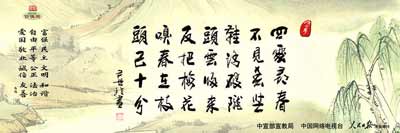 四處尋春
不見春芒
鞋踏破隴
頭雲歸來
反把梅花
嗅春在枝
頭已十分
富强 民主 文明 和谐
自由 平等 公正 法治
爱国 敬业 诚信 友善
中宣部宣教局 中国网络电视台 人民日报